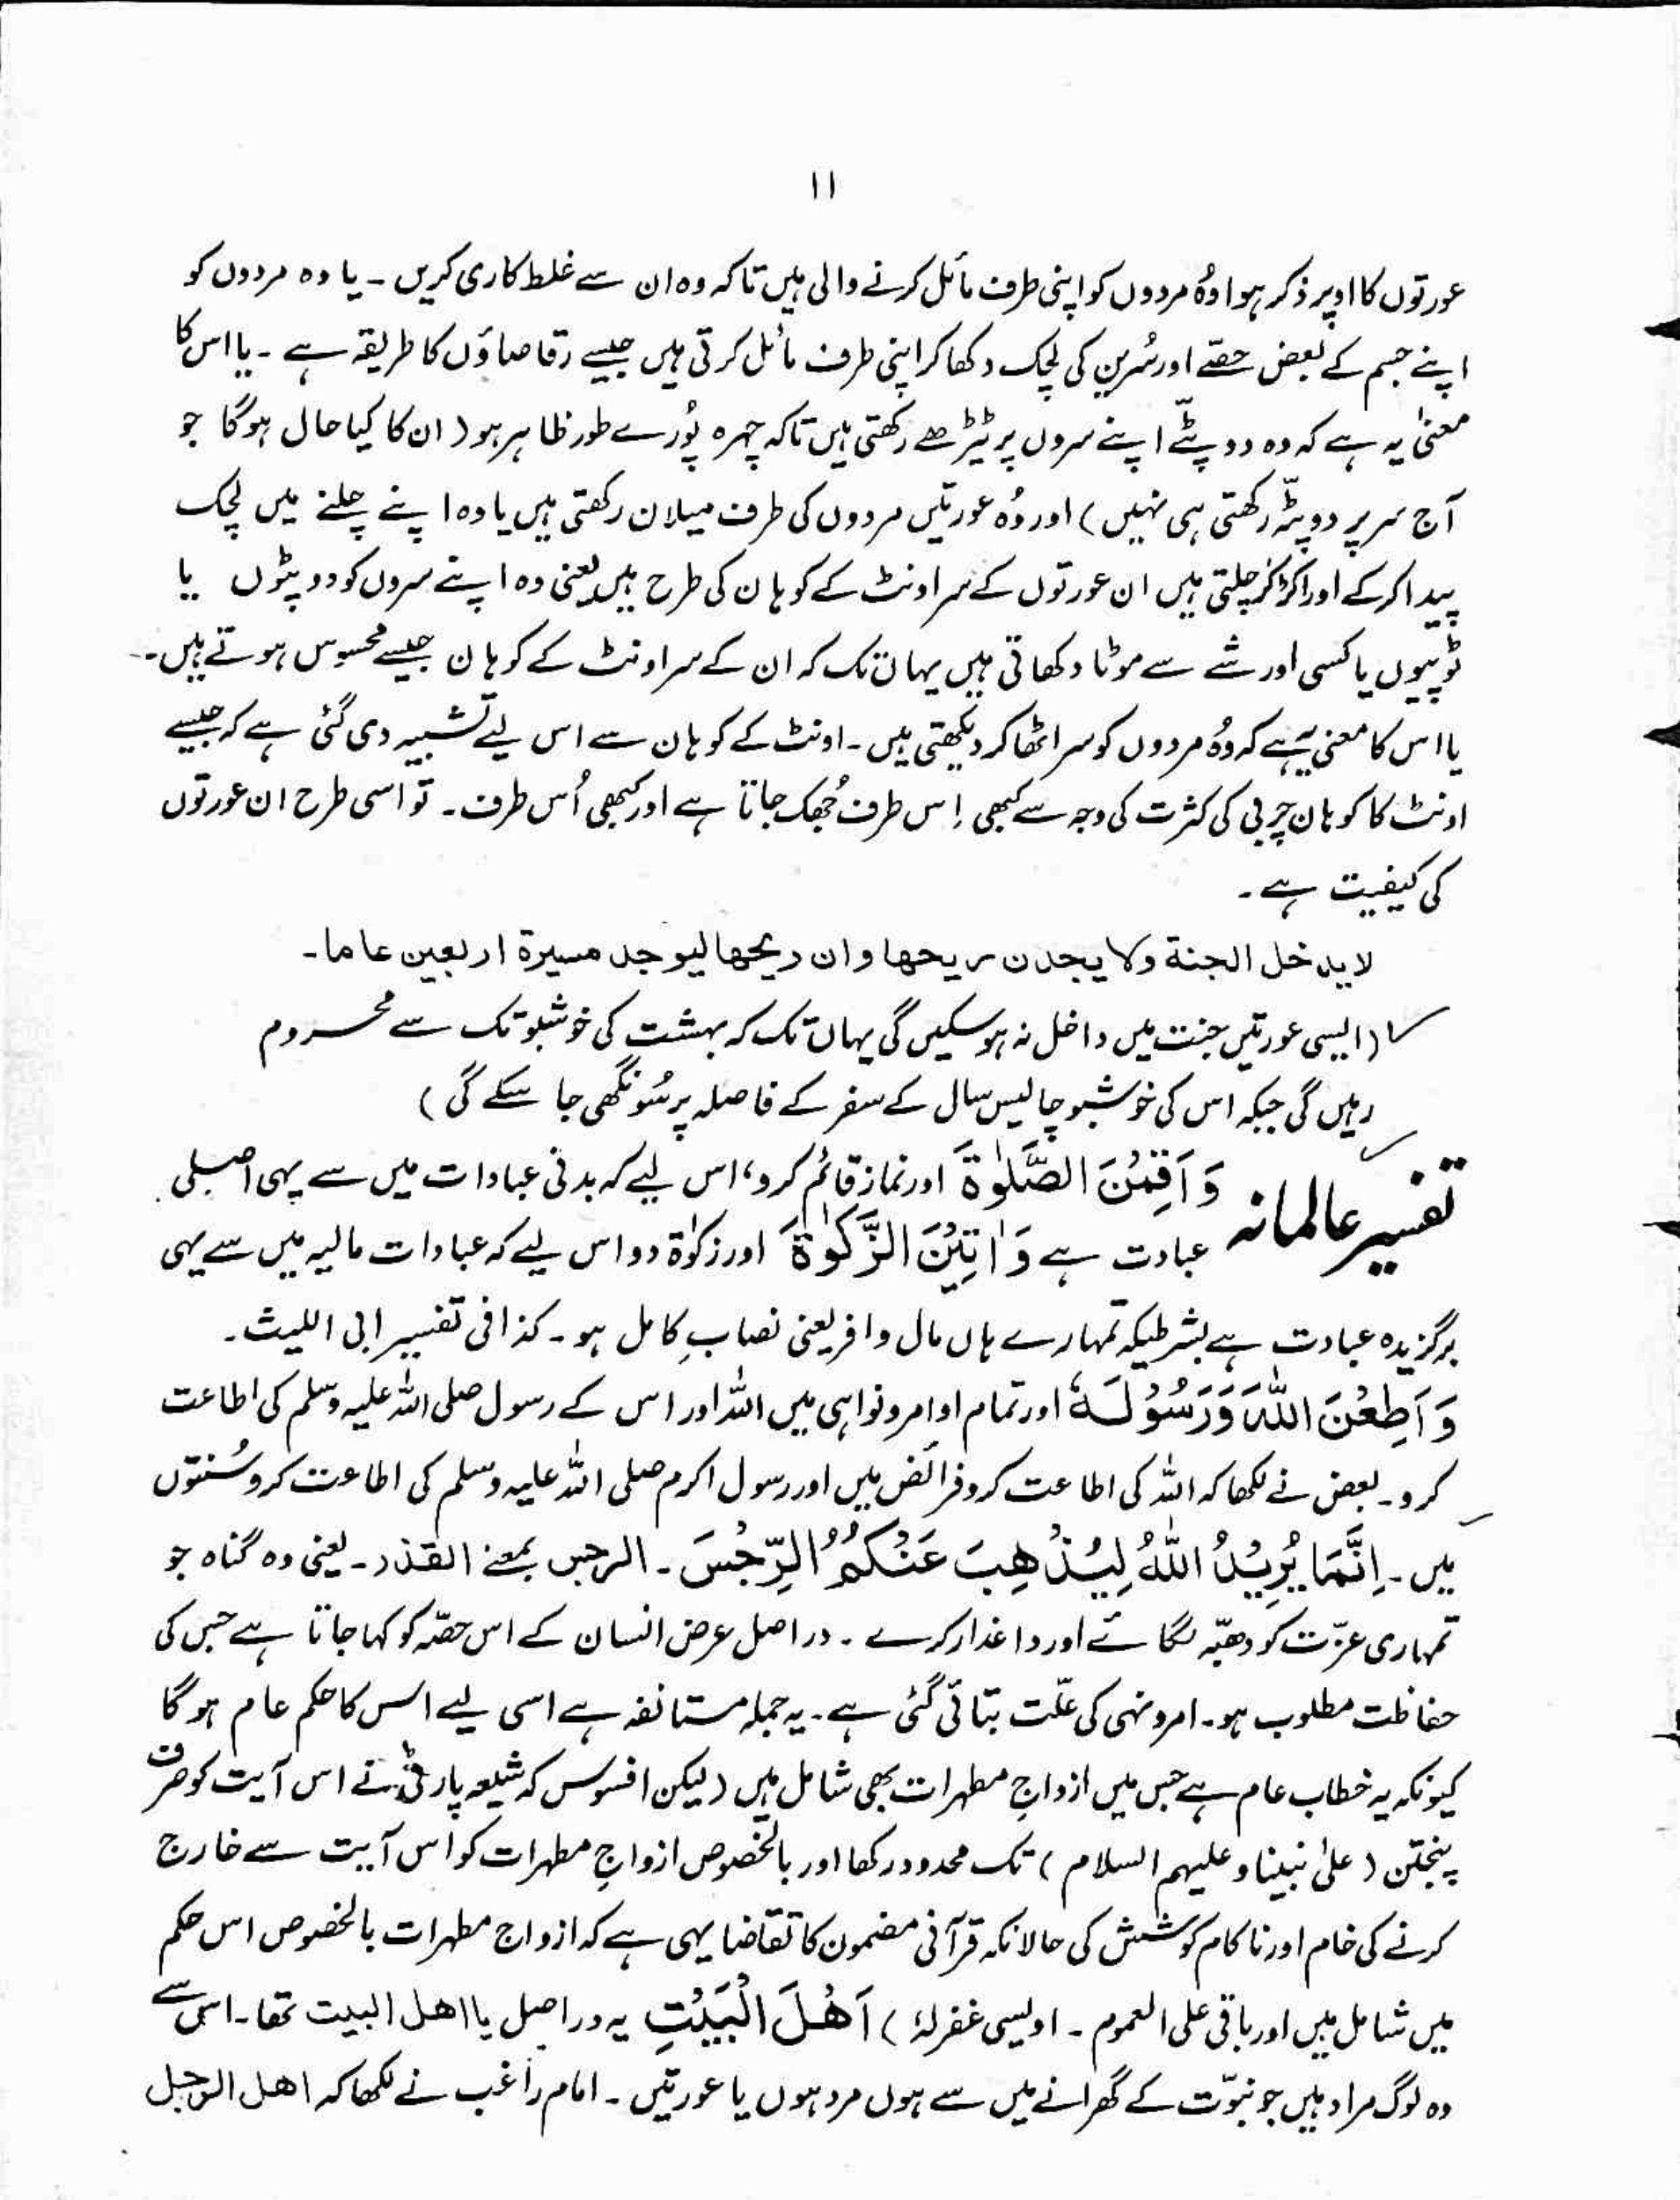 ۱۱
عورتوں کا اوپر ذکر ہوا وُہ مردوں کو اپنی طرف مائل کرنے والی ہیں تاکہ وہ ان سے غلط کاری کریں ۔ یا وہ مردوں کو
اپنے جسم کے بعض حصّے اور سُرین کی لچک دکھا کر اپنی طرف مائل کرتی ہیں جیسے رقاصاؤں کا طریقہ ہے ۔ یا اس کا
معنٰی یہ ہے کہ وہ دوپٹّے اپنے سروں پر ٹیڑھے رکھتی ہیں تاکہ چہرہ پُورے طور ظاہر ہو ( ان کا کیا حال ہوگا جو
آج سر پر دوپٹّہ رکھتی ہی نہیں ) اور وُہ عورتیں مردوں کی طرف میلان رکھتی ہیں یا وہ اپنے چلنے میں لچک
پیدا کرکے اور اکڑ اکڑ چلتی ہیں ان عورتوں کے سر اونٹ کے کوہان کی طرح ہیں یعنی وہ اپنے سروں کو دوپٹوں یا
ٹوپیوں یا کسی اور شے سے موٹا دکھاتی ہیں یہاں تک کہ ان کے سر اونٹ کے کوہان جیسے محسوس ہوتے ہیں ۔
یا اس کا معنی یہ ہے کہ وُہ مردوں کو سر اٹھا کر دیکھتی ہیں ۔ اونٹ کے کوہان سے اس لیے تشبیہ دی گئی ہے کہ جیسے
اونٹ کا کوہان چربی کی کثرت کی وجہ سے کبھی اِس طرف جُھک جاتا ہے اور کبھی اُس طرف ۔ تو اسی طرح ان عورتوں
کی کیفیت ہے ۔
لا يدخل الجنة ولا يجدن ريحها وان ريحها ليوجد مسيرة اربعين عاما ۔
( ایسی عورتیں جنت میں داخل نہ ہو سکیں گی یہاں تک کہ بہشت کی خوشبو تک سے محروم
رہیں گی جبکہ اس کی خوشبو چالیس سال کے سفر کے فاصلہ پر سُونگھی جا سکے گی )
تفسیر عالمانہ وَ اَقِمْنَ الصَّلٰوةَ اور نماز قائم کرو ، اس لیے کہ بدنی عبادات میں سے یہی اصلی
عبادت ہے وَ اٰتِیْنَ الزَّکٰوةَ اور زکوٰۃ دو اس لیے کہ عبادات مالیہ میں سے یہی
برگزیدہ عبادت ہے بشرطیکہ تمہارے ہاں مال وافر یعنی نصابِ کامل ہو ۔ کذا فی تفسیر ابی اللیث ۔
وَ اَطِعْنَ اللّٰہَ وَ رَسُوْلَہٗ اور تمام اوامر و نواہی میں اللہ اور اس کے رسول صلی اللہ علیہ وسلم کی اطاعت
کرو ۔ بعض نے لکھا کہ اللہ کی اطاعت کرو فرائض میں اور رسول اکرم صلی اللہ علیہ وسلم کی اطاعت کرو سُنتوں
میں ۔ اِنَّمَا یُرِیْدُ اللّٰہُ لِیُذْهِبَ عَنْکُمُ الرِّجْسَ ۔ الرجس بمعنے القذر ۔ یعنی وہ گناہ جو
تمہاری عزّت کو دھبّہ لگائے اور داغدار کرے ۔ دراصل عرض انسان کے اس حصّہ کو کہا جاتا ہے جس کی
حفاظت مطلوب ہو ۔ امر و نہی کی علّت بتائی گئی ہے ۔ یہ جملہ مستانفہ ہے اسی لیے اس کا حکم عام ہوگا
کیونکہ یہ خطاب عام ہے جس میں ازواجِ مطہرات بھی شامل ہیں ( لیکن افسوس کہ شیعہ پارٹی نے اس آیت کو صرف
پنجتن ( علیٰ نبینا و علیہم السلام ) تک محدود رکھا اور بالخصوص ازواجِ مطہرات کو اس آیت سے خارج
کرنے کی خام اور ناکام کوشش کی حالانکہ قرآنی مضمون کا تقاضا یہی ہے کہ ازواج مطہرات بالخصوص اس حکم
میں شامل ہیں اور باقی علی العموم ۔ اویسی غفرلہٗ ) اَهْلَ الْبَیْتِ یہ دراصل یا اهل البیت تھا ۔ اس سے
وہ لوگ مراد ہیں جو نبوّت کے گھرانے میں سے ہوں مرد ہوں یا عورتیں ۔ امام راغب نے لکھا کہ اهل الرجل